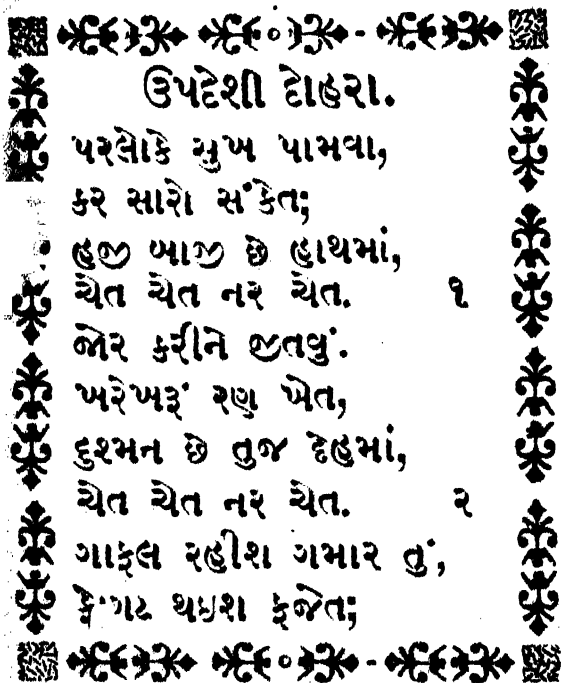 ઉપદેશી દોહરા.
પરલોકે સુખ પામવા,
કર સારો સંકેત;
હજી બાજી છે હાથમાં,
ચેત ચેત નર ચેત. ૧
જોર કરીને જીતવું.
ખરેખરૂં રણ ખેત,
દુશ્મન છે તુજ દેહમાં,
ચેત ચેત નર ચેત. ૨
ગાફલ રહીશ ગમાર તું,
ફોગટ થઇશ ફજેત;